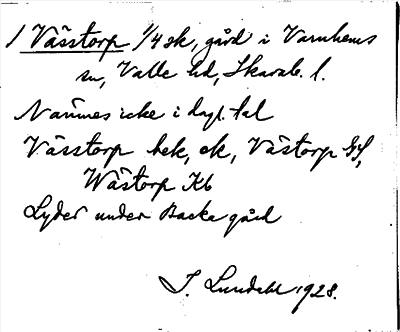 / Västorp 1/4 sk, gård i Varnhems
sn, Valle hd, Skarab. l.
Nämnes icke i dagl. tal
Västorp bek, ek, Västorp GS,
Wästorp Kb
Lyder under Backa gård
I. Lundahl 1928.